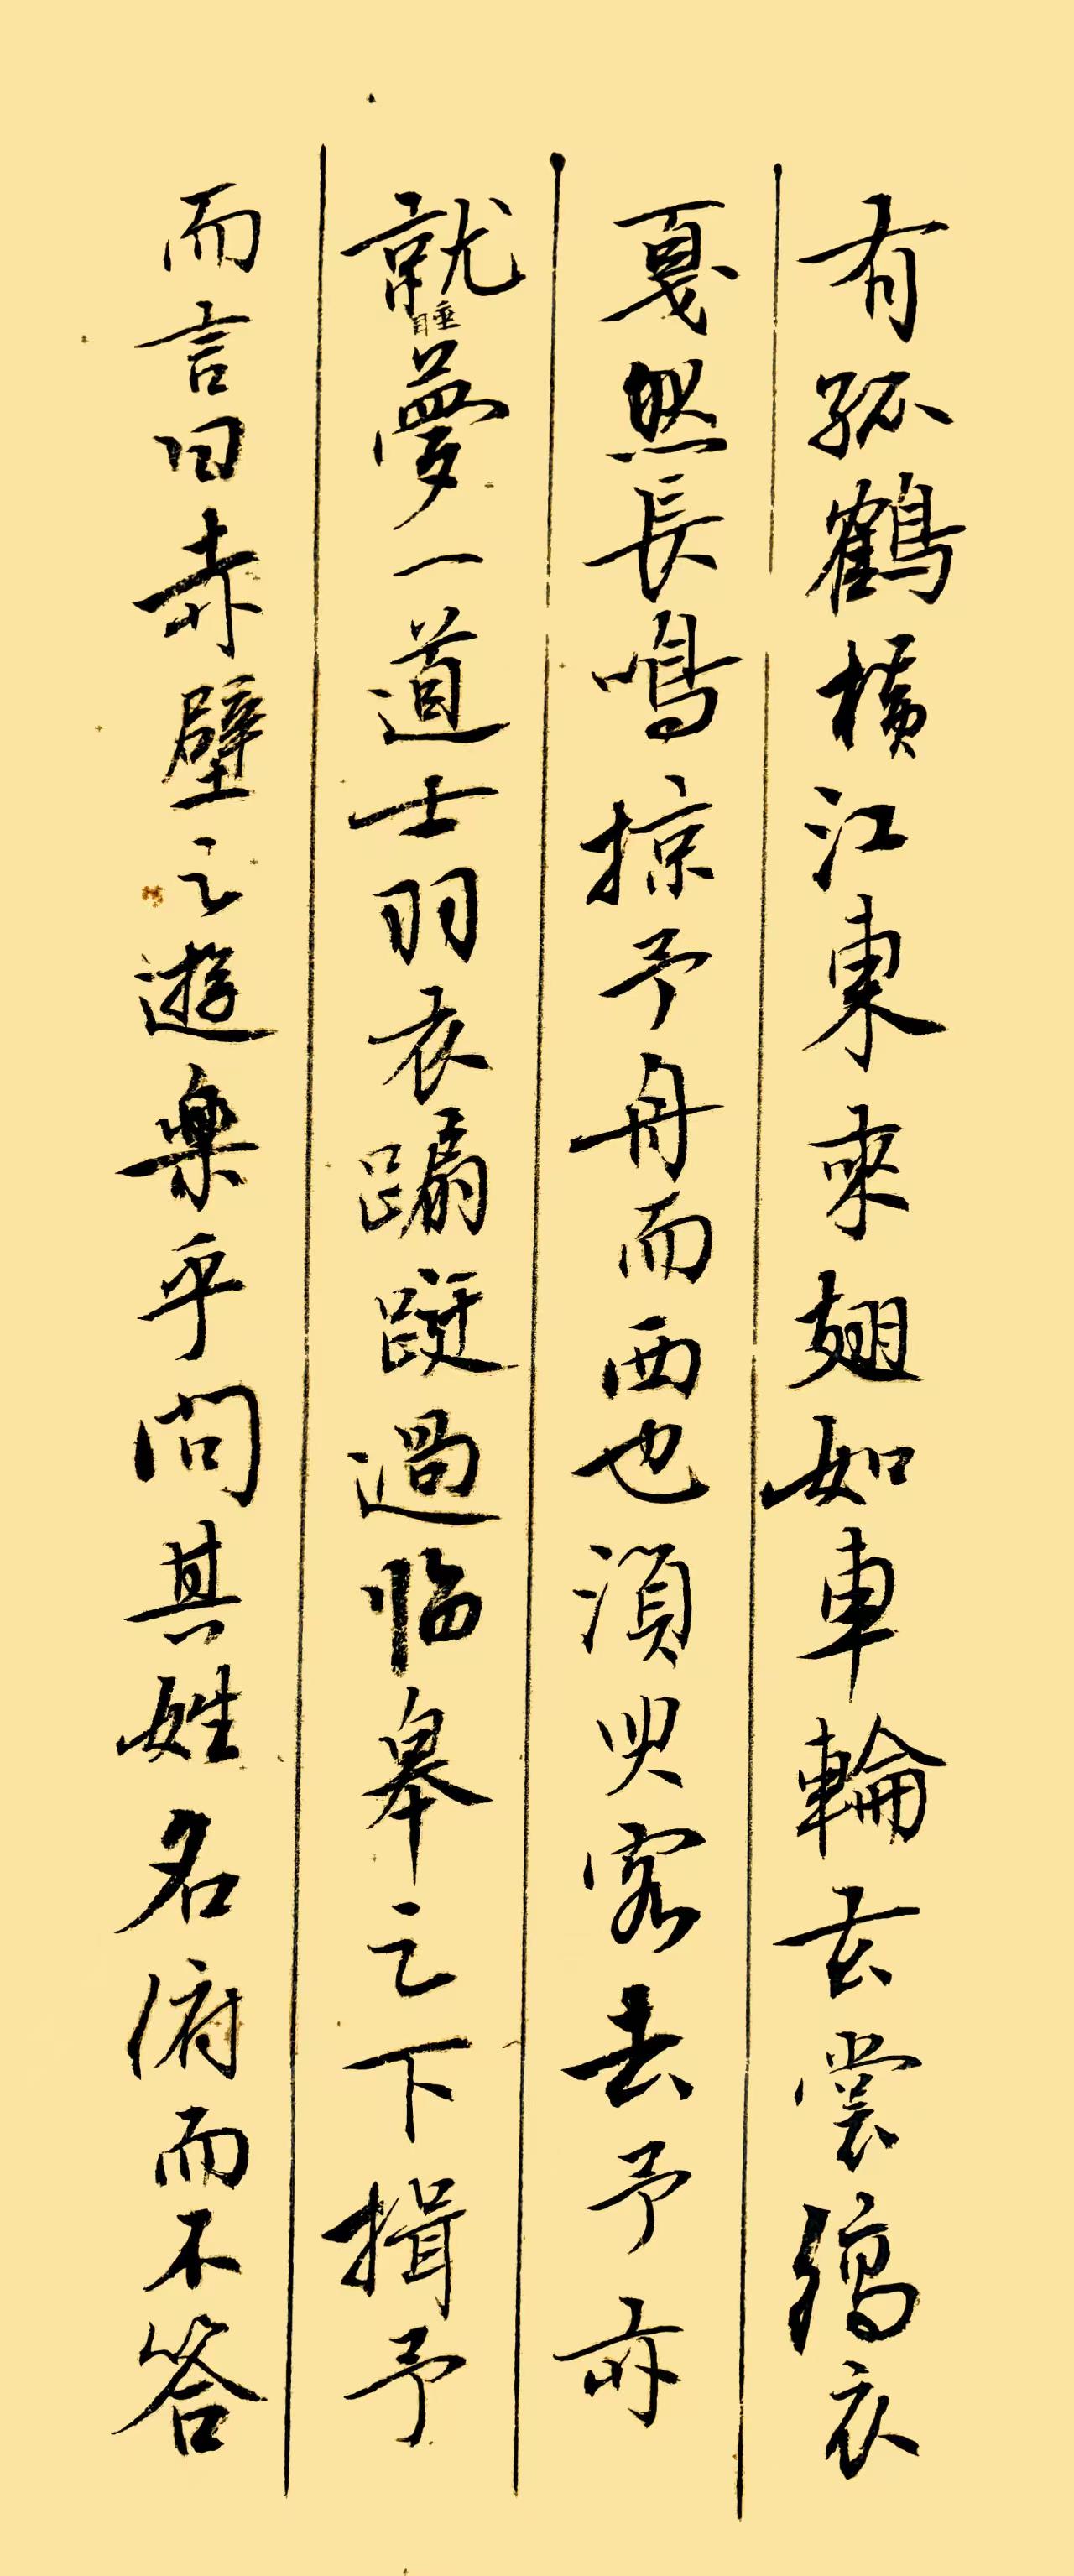 有孤鶴橫江東來翅如車輪玄裳縞衣
戛然長鳴掠予舟而西也須臾客去予亦
就睡夢一道士羽衣蹁躚過臨皋之下揖予
而言曰赤壁之遊樂乎問其姓名俯而不答